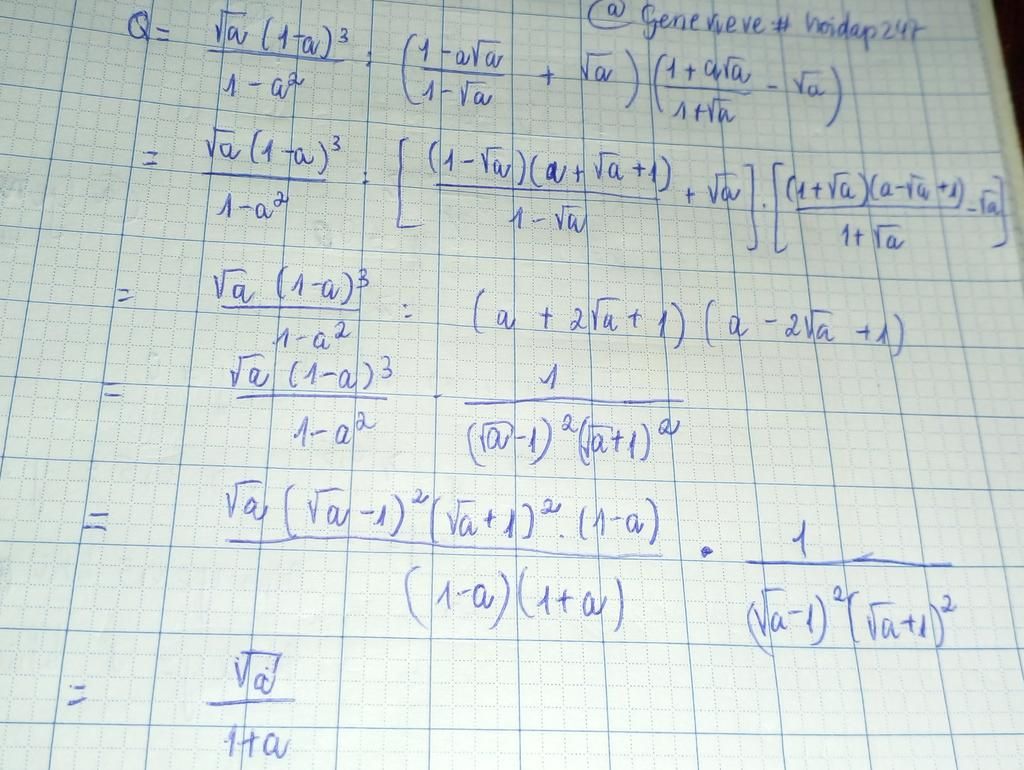 @ Genevieve # hoidap247
Q = √a (1-a)³ / 1-a² : (1-a√a / 1-√a + √a) (1+a√a / 1+√a - √a)
= √a (1-a)³ / 1-a² : [(1-√a)(a+√a+1) / 1-√a + √a] . [(1+√a)(a-√a+1) / 1+√a - √a]
= √a (1-a)³ / 1-a² : (a + 2√a + 1) (a - 2√a + 1)
= √a (1-a)³ / 1-a² . 1 / (√a-1)² (√a+1)²
= √a (√a-1)² (√a+1)² . (1-a) / (1-a)(1+a) . 1 / (√a-1)² (√a+1)²
= √a / 1+a